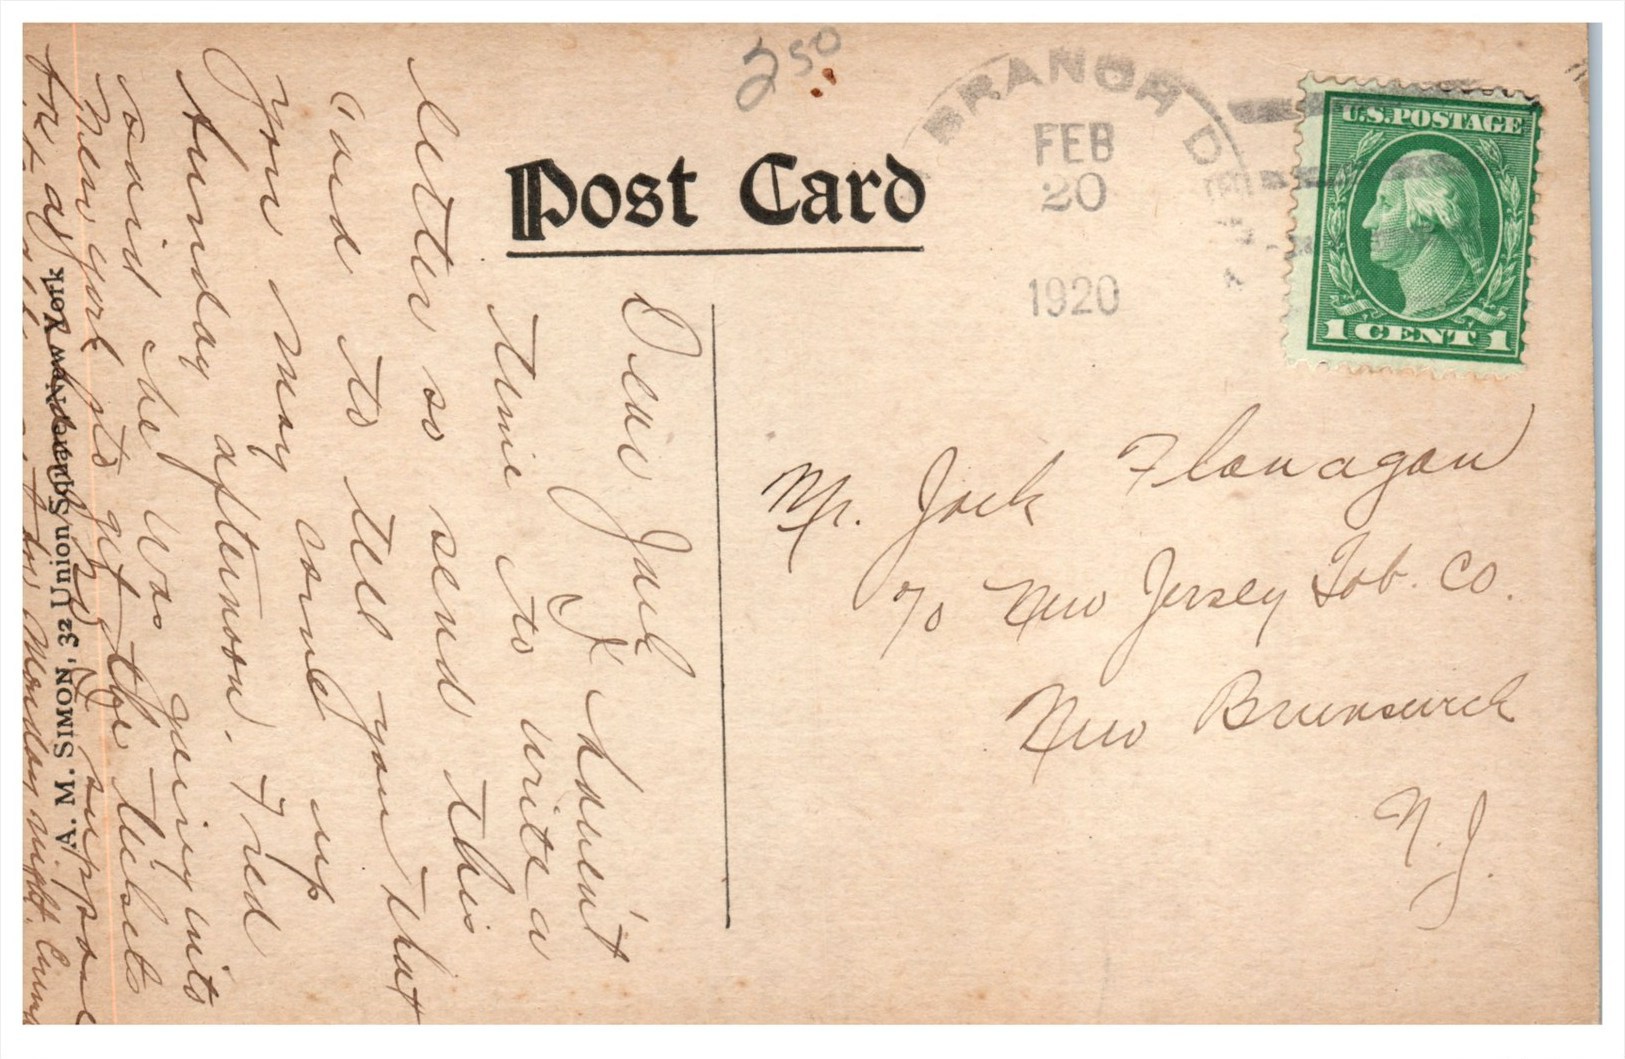 250
BRANCH DE
FEB
20
1920
U.S.POSTAGE
1 CENT 1
Post Card
Mr. Jack Flanagan
c/o New Jersey Tob. Co.
New Brunswick
N. J.
Dear Jack
I haven't
time to write a
letter so send this
card to tell you that
you may come up
Sunday afternoon. Fred
said he was going into
New York to get the tickets
for
suppose
Monday night.
A. M. SIMON, 32 Union Square New York